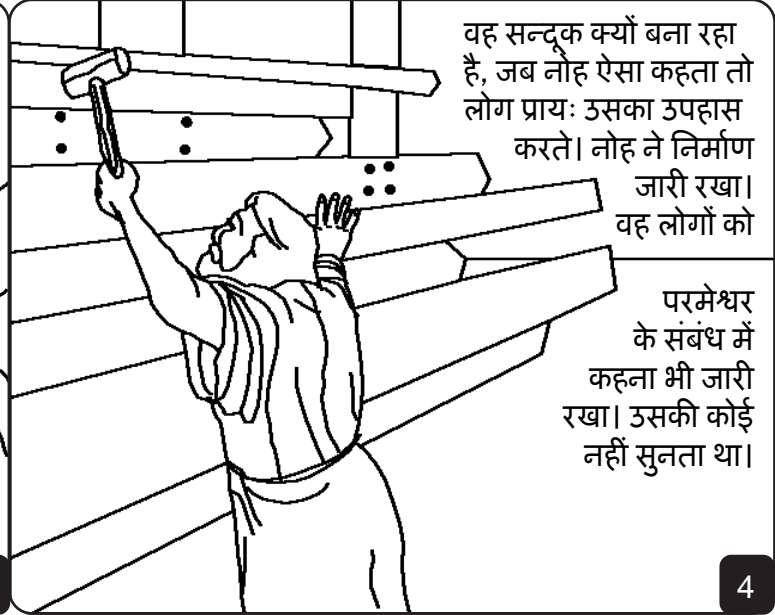 वह सन्दूक क्यों बना रहा
है, जब नोह ऐसा कहता तो
लोग प्रायः उसका उपहास
करते। नोह ने निर्माण
जारी रखा।
वह लोगों को
परमेश्वर
के संबंध में
कहना भी जारी
रखा। उसकी कोई
नहीं सुनता था।
4